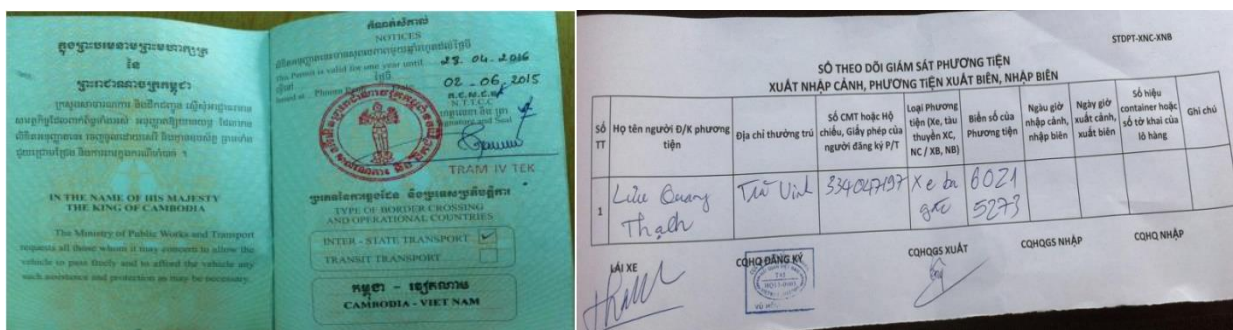 ក្នុងព្រះបរមនាមព្រះមហាក្សត្រ
នៃ
ព្រះរាជាណាចក្រកម្ពុជា
IN THE NAME OF HIS MAJESTY
THE KING OF CAMBODIA
The Ministry of Public Works and Transport
requests all those whom it may concern to allow the
vehicle to pass freely and to afford the vehicle any
such assistance and protection as may be necessary.
កំណត់សំគាល់
NOTICES
This Permit is valid for one year until 28. 04. 2016
Issued at Phnom Penh 02. 06. 2015
N.T.T.C.C
Signature and Seal
TRAM IV TEK
TYPE OF BORDER CROSSING
AND OPERATIONAL COUNTRIES
INTER - STATE TRANSPORT
TRANSIT TRANSPORT
កម្ពុជា - វៀតណាម
CAMBODIA - VIET NAM
STDPT-XNC-XNB
SỔ THEO DÕI GIÁM SÁT PHƯƠNG TIỆN
XUẤT NHẬP CẢNH, PHƯƠNG TIỆN XUẤT BIÊN, NHẬP BIÊN
Số TT
Họ tên người Đ/K phương tiện
Địa chỉ thường trú
Số CMT hoặc Hộ chiếu, Giấy phép của người đăng ký P/T
Loại Phương tiện (Xe, tàu thuyền XC, NC / XB, NB)
Biển số của Phương tiện
Ngày giờ nhập cảnh, nhập biên
Ngày giờ xuất cảnh, xuất biên
Số hiệu container hoặc số tờ khai của lô hàng
Ghi chú
1
Lưu Quang Thạch
Trà Vinh
334047197
Xe ba gác
6021 5273
LÁI XE
CQHQ ĐĂNG KÝ
CQHQGS XUẤT
CQHQGS NHẬP
CQHQ NHẬP